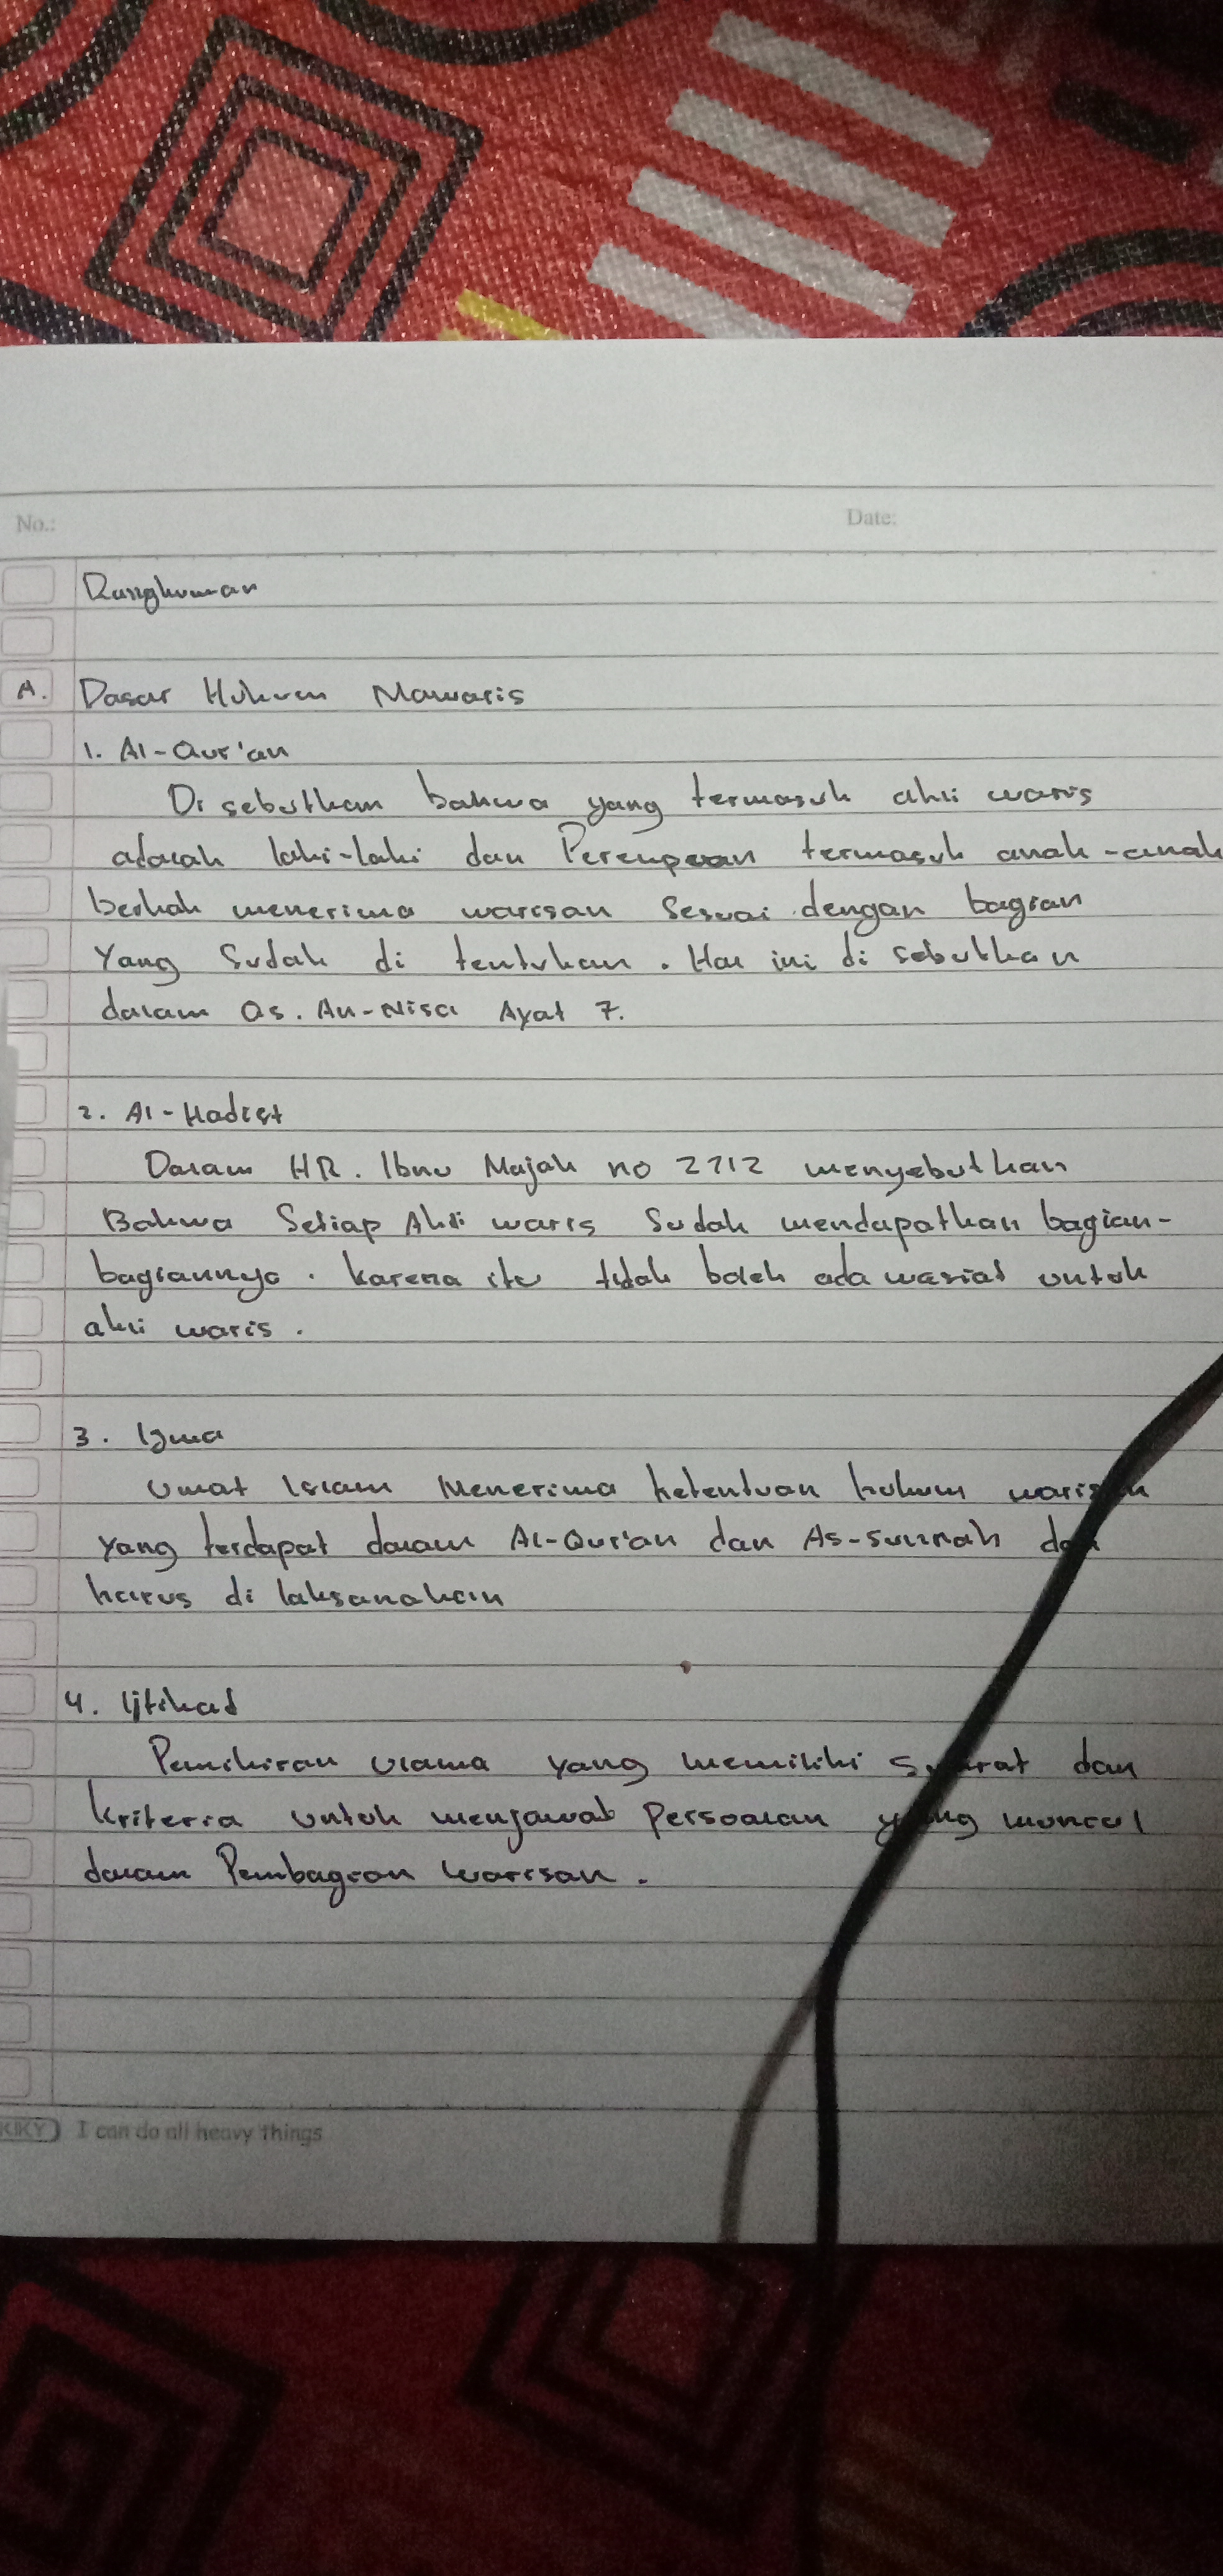 No.:
Date:
Rangkuman
A. Dasar Hukum Mawaris
1. Al-Qur'an
Di sebutkan bahwa yang termasuk ahli waris
adalah laki-laki dan Perempuan termasuk anak-anak
berhak menerima warisan Sesuai dengan bagian
Yang Sudah di tentukan. Hal ini di sebutkan
dalam Qs. An-Nisa Ayat 7.
2. Al-Hadist
Dalam HR. Ibnu Majah no 2712 menyebutkan
Bahwa Setiap Ahli waris Sudah mendapatkan bagian-
bagiannya. Karena itu tidak boleh ada wasiat untuk
ahli waris.
3. Ijma
Umat Islam Menerima ketentuan hukum warisan
Yang terdapat dalam Al-Qur'an dan As-Sunnah dan
harus di laksanakan
4. Ijtihad
Pemikiran Ulama yang memiliki Syarat dan
Kriteria untuk menjawab Persoalan yang muncul
dalam Pembagian Warisan.
KIKY I can do all heavy things